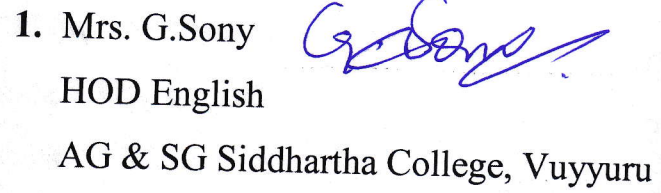 1. Mrs. G.Sony G. Sony
HOD English
AG & SG Siddhartha College, Vuyyuru